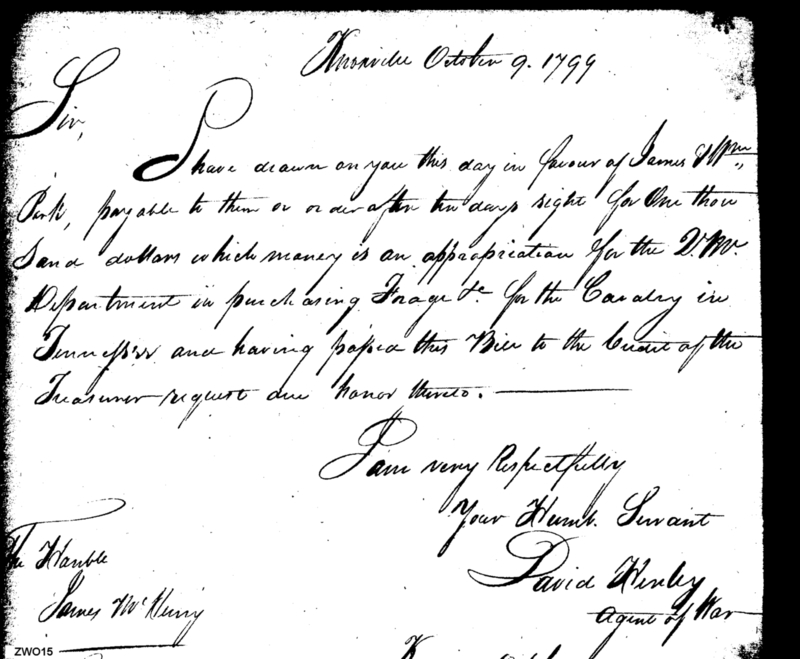 Knoxville October 9. 1799
Sir,
I have drawn on you this day in favour of James & Wm
Park, payable to them or order after ten days sight for One thou
sand dollars which money is an appropriation for the Q.M.
Department in purchasing Forage &c for the Cavalry in
Tennessee and having passed this Bill to the Credit of the
Treasurer request due honor thereto.
I am very Respectfully
Your Humb. Servant
David Henley
Agent of War
The Honble
James McHenry
ZWO15